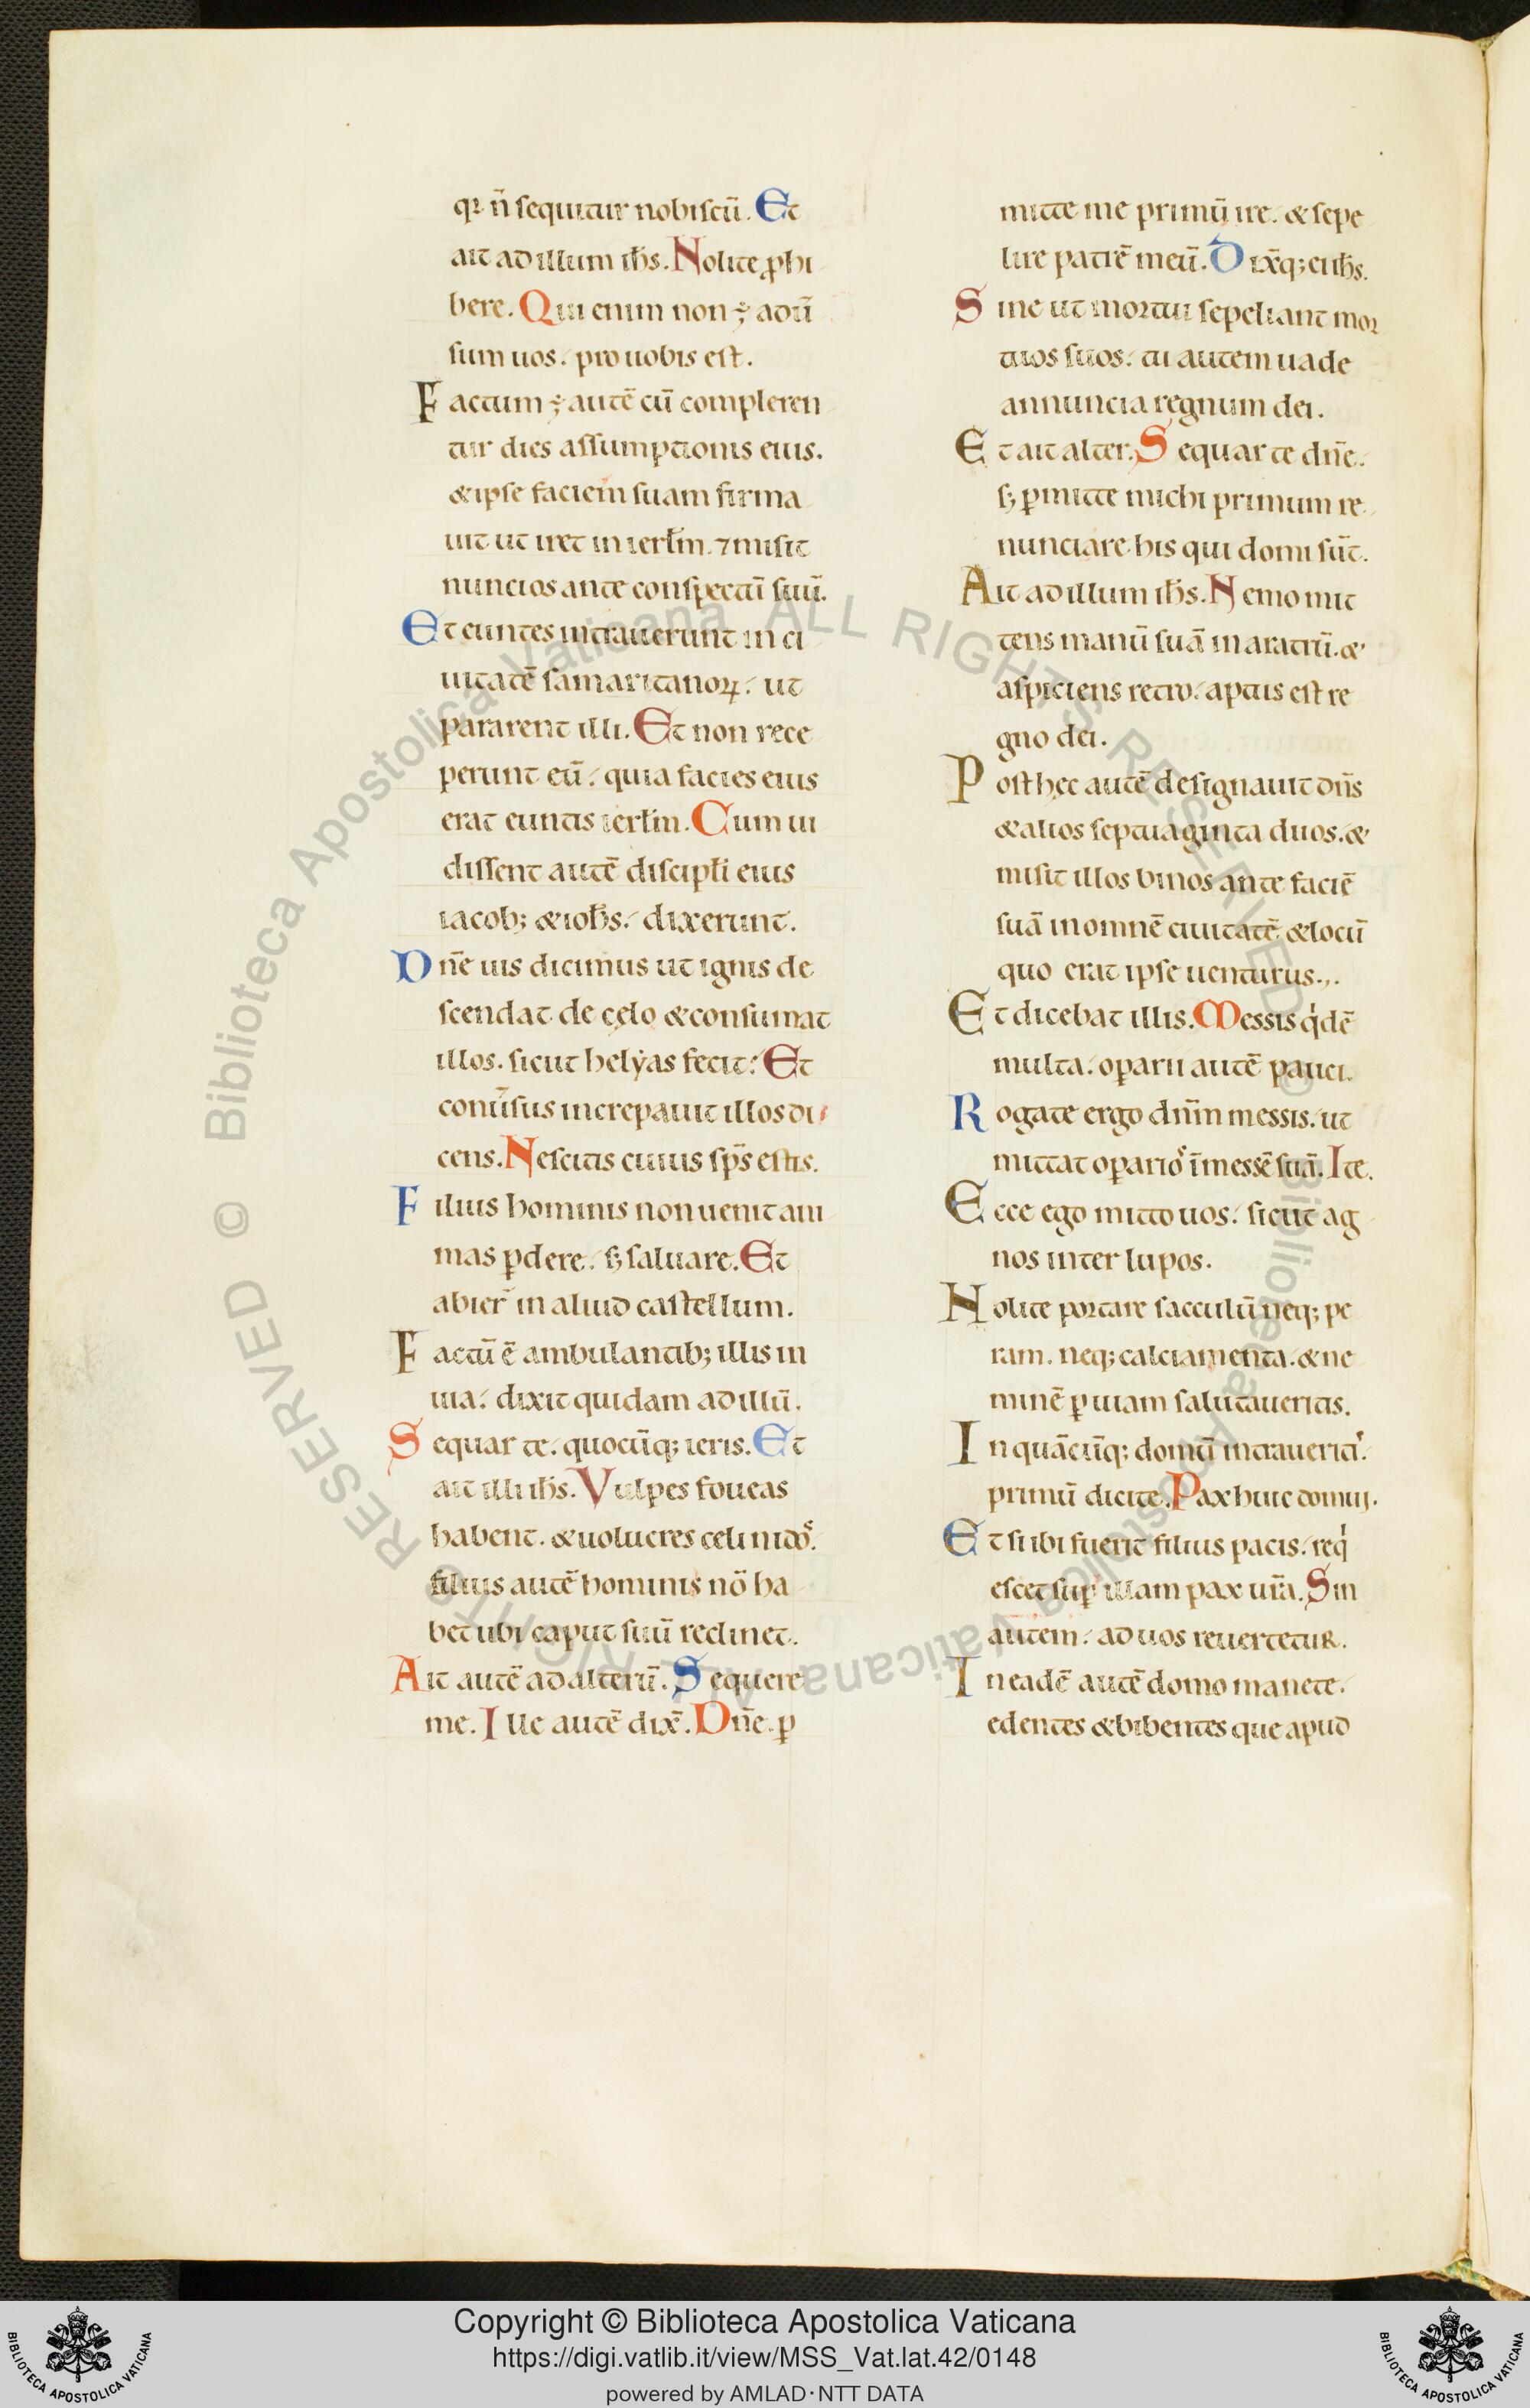 qꝛ n̄ sequitur nobiscū. Et
ait ad illum ih̄s. Nolite ꝓhi
bere. Qui enim non ÷ adū
sum uos. pro uobis est.
Factum ÷ autē cū compleren
tur dies assumptionis eius.
& ipse faciem suam firma
uit ut iret in ierłm. ⁊ misit
nuncios ante conspectū suū.
Et euntes intrauerunt in ci
uitatē samaritanoꝝ. ut
pararent illi. Et non rece
perunt eū. quia facies eius
erat euntis ierłm. Cum ui
dissent autē discipłi eius
iacob; & ioh̄s. dixerunt.
Dn̄e uis dicimus ut ignis de
scendat de cęlo & consumat
illos. sicut helẏas fecit. Et
conūsus increpauit illos di
cens. Nescitis cuius sp̄s estis.
Filius hominis non uenit ani
mas ꝑdere. sꝫ saluare. Et
abier̄ in aliud castellum.
Factū ē ambulantib; illis in
uia. dixit quidam ad illū.
Sequar te. quocūq; ieris. Et
ait illi ih̄s. Vulpes foueas
habent. & uolucres celi nidoˢ.
filius autē hominis nō ha
bet ubi caput suū reclinet.
Ait autē ad alterū. Sequere
me. Ille autē dix̄. Dn̄e. ꝑ
mitte me primū ire. & sepe
lire patrē meū. Dix̄q; ei ih̄s.
Sine ut mortui sepeliant moꝛ
tuos suos. tu autem uade
annuncia regnum dei.
Et ait alter. Sequar te dn̄e.
sꝫ ꝑmitte michi primum re
nunciare his qui domi sūt.
Ait ad illum ih̄s. Nemo mit
tens manū suā in aratrū. &
aspiciens retro. aptus est re
gno dei.
Post hec autē designauit dn̄s
& alios septuaginta duos. &
misit illos binos ante faciē
suā in omnē ciuitatē & locū
quo erat ipse uenturus.,.
Et dicebat illis. Messis qͥdē
multa. oꝑarii autē pauci.
Rogate ergo dn̄m messis. ut
mittat oꝑarioˢ ī messē suā. Ite.
Ecce ego mitto uos. sicut ag
nos inter lupos.
Nolite portare sacculū neq; pe
ram. neq; calciamenta. & ne
minē ꝑ uiam salutaueritis.
In quācūq; domū intraueritˢ.
primū dicite. Pax huic domui.
Et si ibi fuerit filius pacis. reqͥ
escet suꝑ illam pax ur̄a. Sin
autem. ad uos reuertetur.
In eadē autē domo manete.
edentes & bibentes que apud
Copyright © Biblioteca Apostolica Vaticana
https://digi.vatlib.it/view/MSS_Vat.lat.42/0148
powered by AMLAD·NTT DATA
BIBLIOTECA APOSTOLICA VATICANA
BIBLIOTECA APOSTOLICA VATICANA
© Biblioteca Apostolica Vaticana ALL RIGHTS RESERVED © Biblioteca Apostolica Vaticana ALL RIGHTS RESERVED